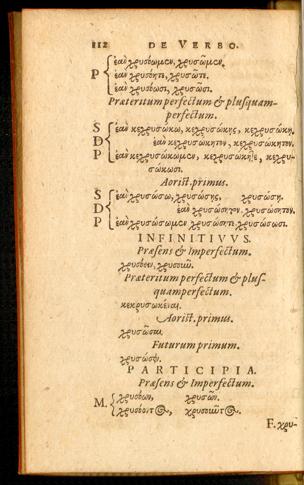 112 DE VERBO.
ἐὰν χρυσόωμεν, χρυσῶμεν.
P ἐὰν χρυσόητε, χρυσῶτε.
ἐὰν χρυσόωσι, χρυσῶσι.
Præteritum perfectum & plusquam-
perfectum.
S ἐὰν κεχρυσώκω, κεχρυσώκης, κεχρυσώκη.
D ἐὰν κεχρυσώκητον, κεχρυσώκητον.
P ἐὰν κεχρυσώκωμεν, κεχρυσώκητε, κεχρυ-
σώκωσι.
Aorist. primus.
S ἐὰν χρυσώσω, χρυσώσης, χρυσώση.
D ἐὰν χρυσώσητον, χρυσώσητον.
P ἐὰν χρυσώσωμεν χρυσώσητε χρυσώσωσι.
INFINITIVVS.
Præsens & Imperfectum.
χρυσόειν, χρυσοῦν.
Præteritum perfectum & plus-
quamperfectum.
κεκρυσωκέναι.
Aorist. primus.
χρυσῶσαι.
Futurum primum.
χρυσώσειν.
PARTICIPIA.
Præsens & Imperfectum.
M. χρυσόων, χρυσῶν.
χρυσόοντος, χρυσοῦντος.
F. χρυ-